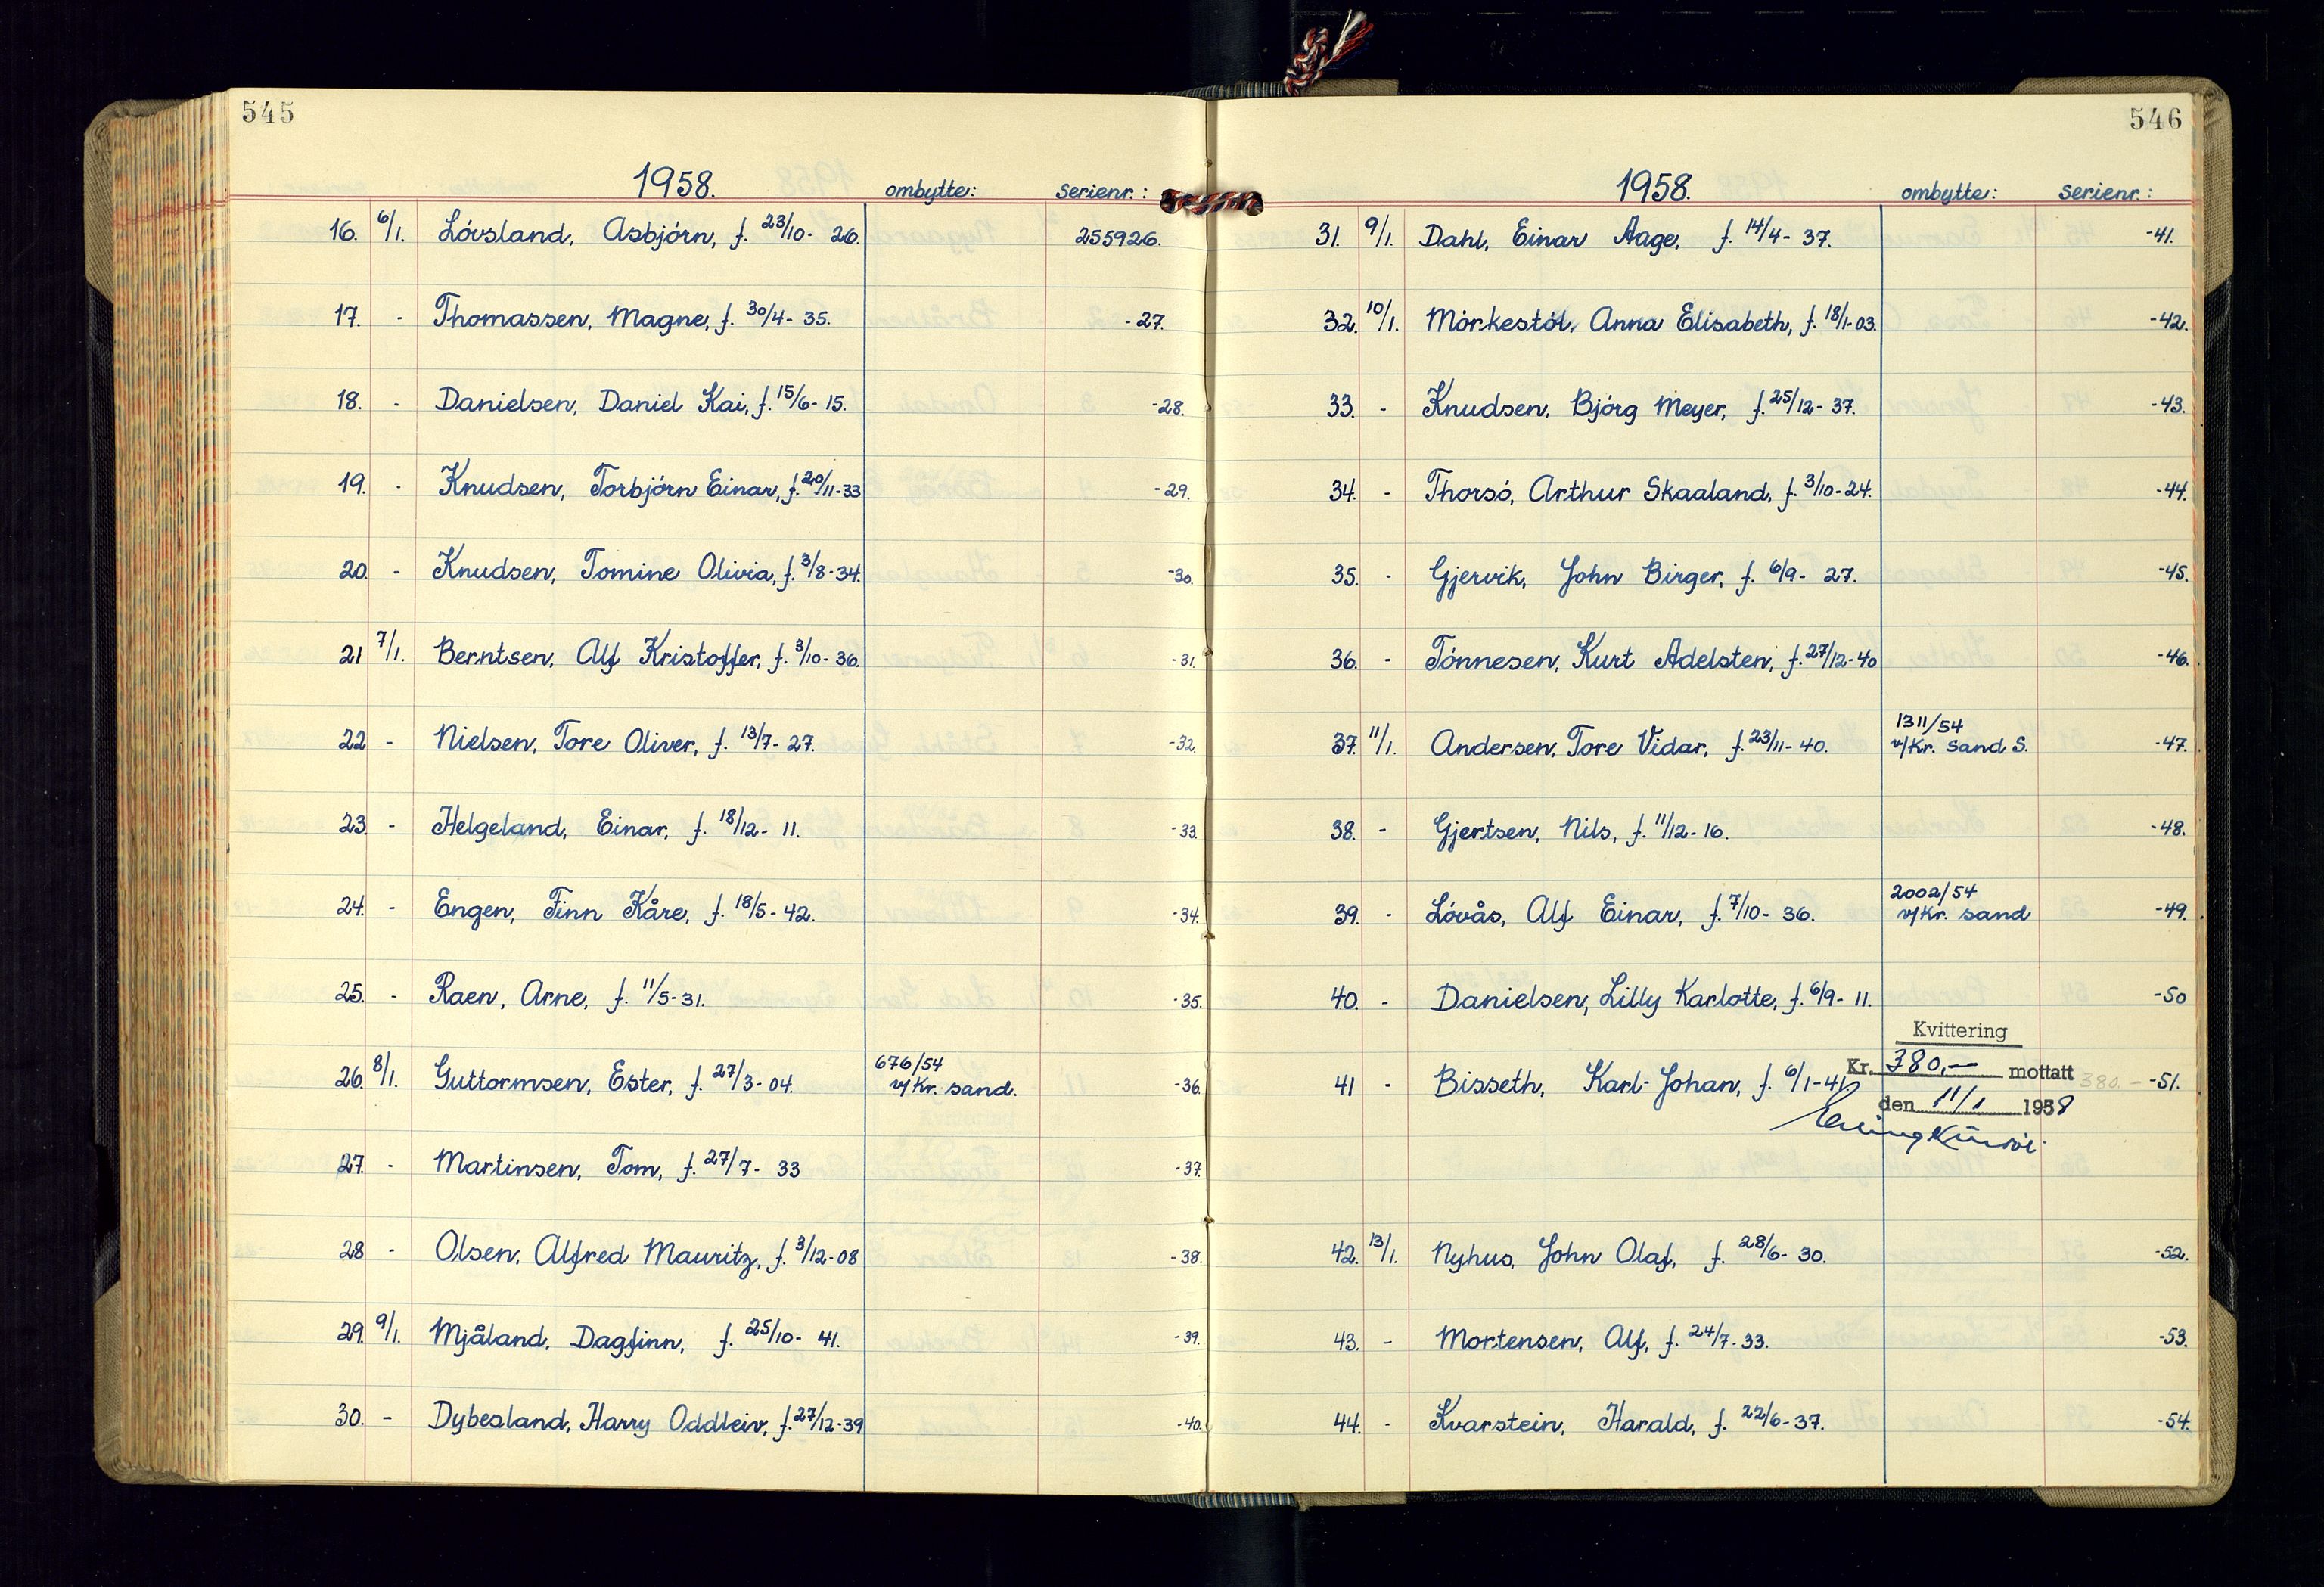 545
1958. ombytte: serienr.:
16. 6/1. Lövsland, Asbjörn, f. 23/10- 26. 255926.
17. - Thomassen, Magne, f. 30/4- 35. -27.
18. - Danielsen, Daniel Kai, f. 15/6- 15. -28.
19. - Knudsen, Torbjörn Einar, f. 20/11-33 -29.
20. - Knudsen, Tomine Olivia, f. 3/8-34. -30.
21 7/1. Berntsen, Alf Kristoffer, f. 3/10- 36. -31.
22 - Nielsen, Tore Oliver, f. 13/7- 27. -32.
23. - Helgeland, Einar, f. 18/12- 11. -33.
24. - Engen, Finn Kåre, f. 18/5- 42. -34.
25. - Raen, Arne, f. 11/5-31. -35.
26. 8/1. Guttormsen, Ester, f. 27/3- 04. 676/54 v/Kr. sand. -36.
27. - Martinsen, Tom, f. 27/7- 33 -37.
28 - Olsen, Alfred Mauritz, f. 3/12-08 -38.
29. 9/1. Mjåland, Dagfinn, f. 25/10- 41. -39.
30. - Dybesland, Harry Oddleiv, f. 27/12-39 -40.
546
1958. ombytte: serienr.:
31. 9/1. Dahl, Einar Aage, f. 14/4- 37. -41.
32. 10/1. Mörkestöl, Anna Elisabeth, f. 18/1-03. -42.
33. - Knudsen, Björg Meyer, f. 25/12- 37. -43.
34. - Thorsö, Arthur Skaaland, f. 3/10-24. -44.
35. - Gjervik, John Birger, f. 6/9- 27. -45.
36. - Tönnesen, Kurt Adelsten, f. 27/12-40 -46.
37. 11/1. Andersen, Tore Vidar, f. 23/11-40. 1311/54 v/Kr. Sand S. -47.
38. - Gjertsen, Nils, f. 11/12-16. -48.
39. - Lövås, Alf Einar, f. 7/10- 36. 2002/54 v/Kr. sand -49.
40. - Danielsen, Lilly Karlotte, f. 6/9- 11. -50
Kvittering
41 - Bisseth, Karl-Johan, f. 6/1-41. Kr. 380,- mottatt 380.- -51.
den 11/1 1958
42. 13/1. Nyhus, John Olaf, f. 28/6- 30. -52.
43. - Mortensen, Alf, f. 24/7-33. -53.
44. - Kvarstein, Harald, f. 22/6-37. -54.